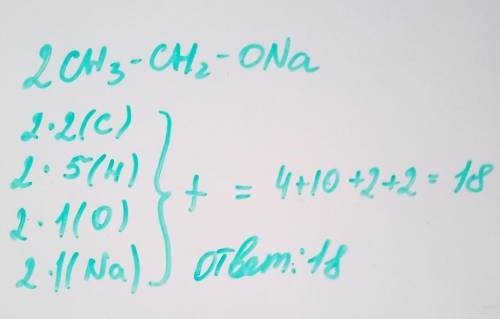 2CH₃-CH₂-ONa
2·2(C)
2·5(H)
2·1(O)
2·1(Na)
} + = 4+10+2+2=18
ответ:18